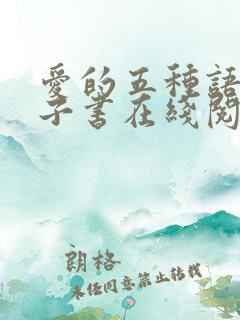 愛的五種語
子書在綫閱
朗格
未经同意禁止转载